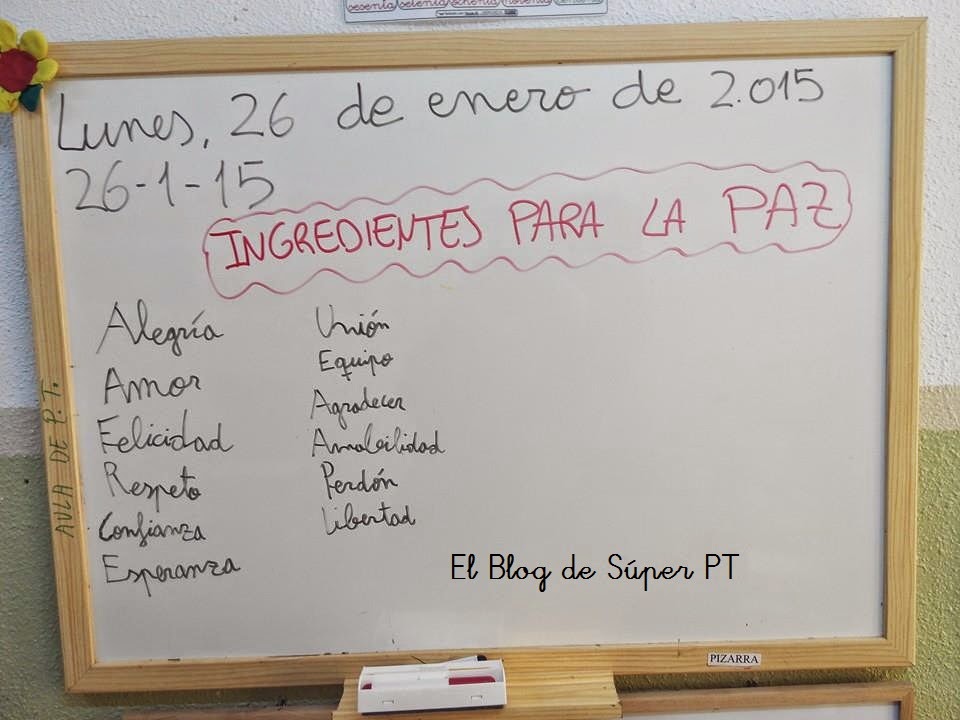 sesenta setenta ochenta noventa
Lunes, 26 de enero de 2.015
26-1-15
INGREDIENTES PARA LA PAZ
Alegría
Amor
Felicidad
Respeto
Confianza
Esperanza
Unión
Equipo
Agradecer
Amabilidad
Perdón
Libertad
AULA DE P.T.
El Blog de Súper PT
PIZARRA